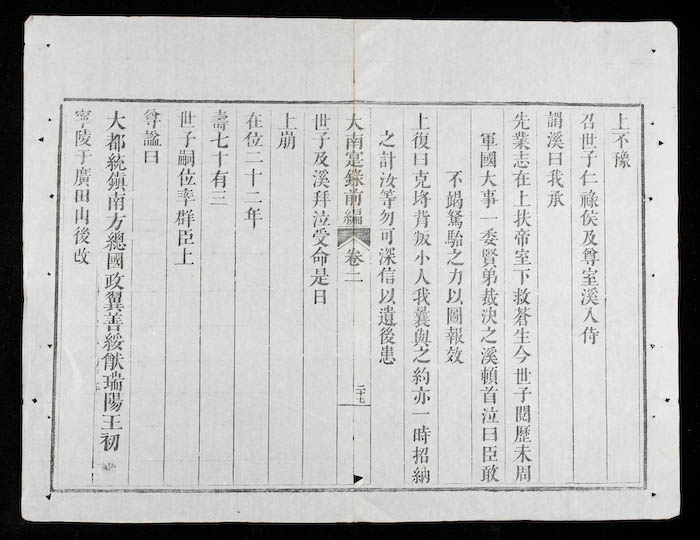 上不豫
召世子仁祿侯及尊室溪入侍
謂溪曰我承
先業志在上扶帝室下救蒼生今世子閱歷未周
軍國大事一委賢弟裁決之溪頓首泣曰臣敢
不竭駑駘之力以圖報效
上復曰克㙺背叛小人我曩與之約亦一時招納
之計汝等勿可深信以遺後患
大南寔錄前編 卷二 二十七
世子及溪拜泣受命是日
上崩
在位二十二年
壽七十有三
世子嗣位率群臣上
尊諡曰
大都統鎮南方總國政翼善綏猷瑞陽王初
寧陵于廣田山後改